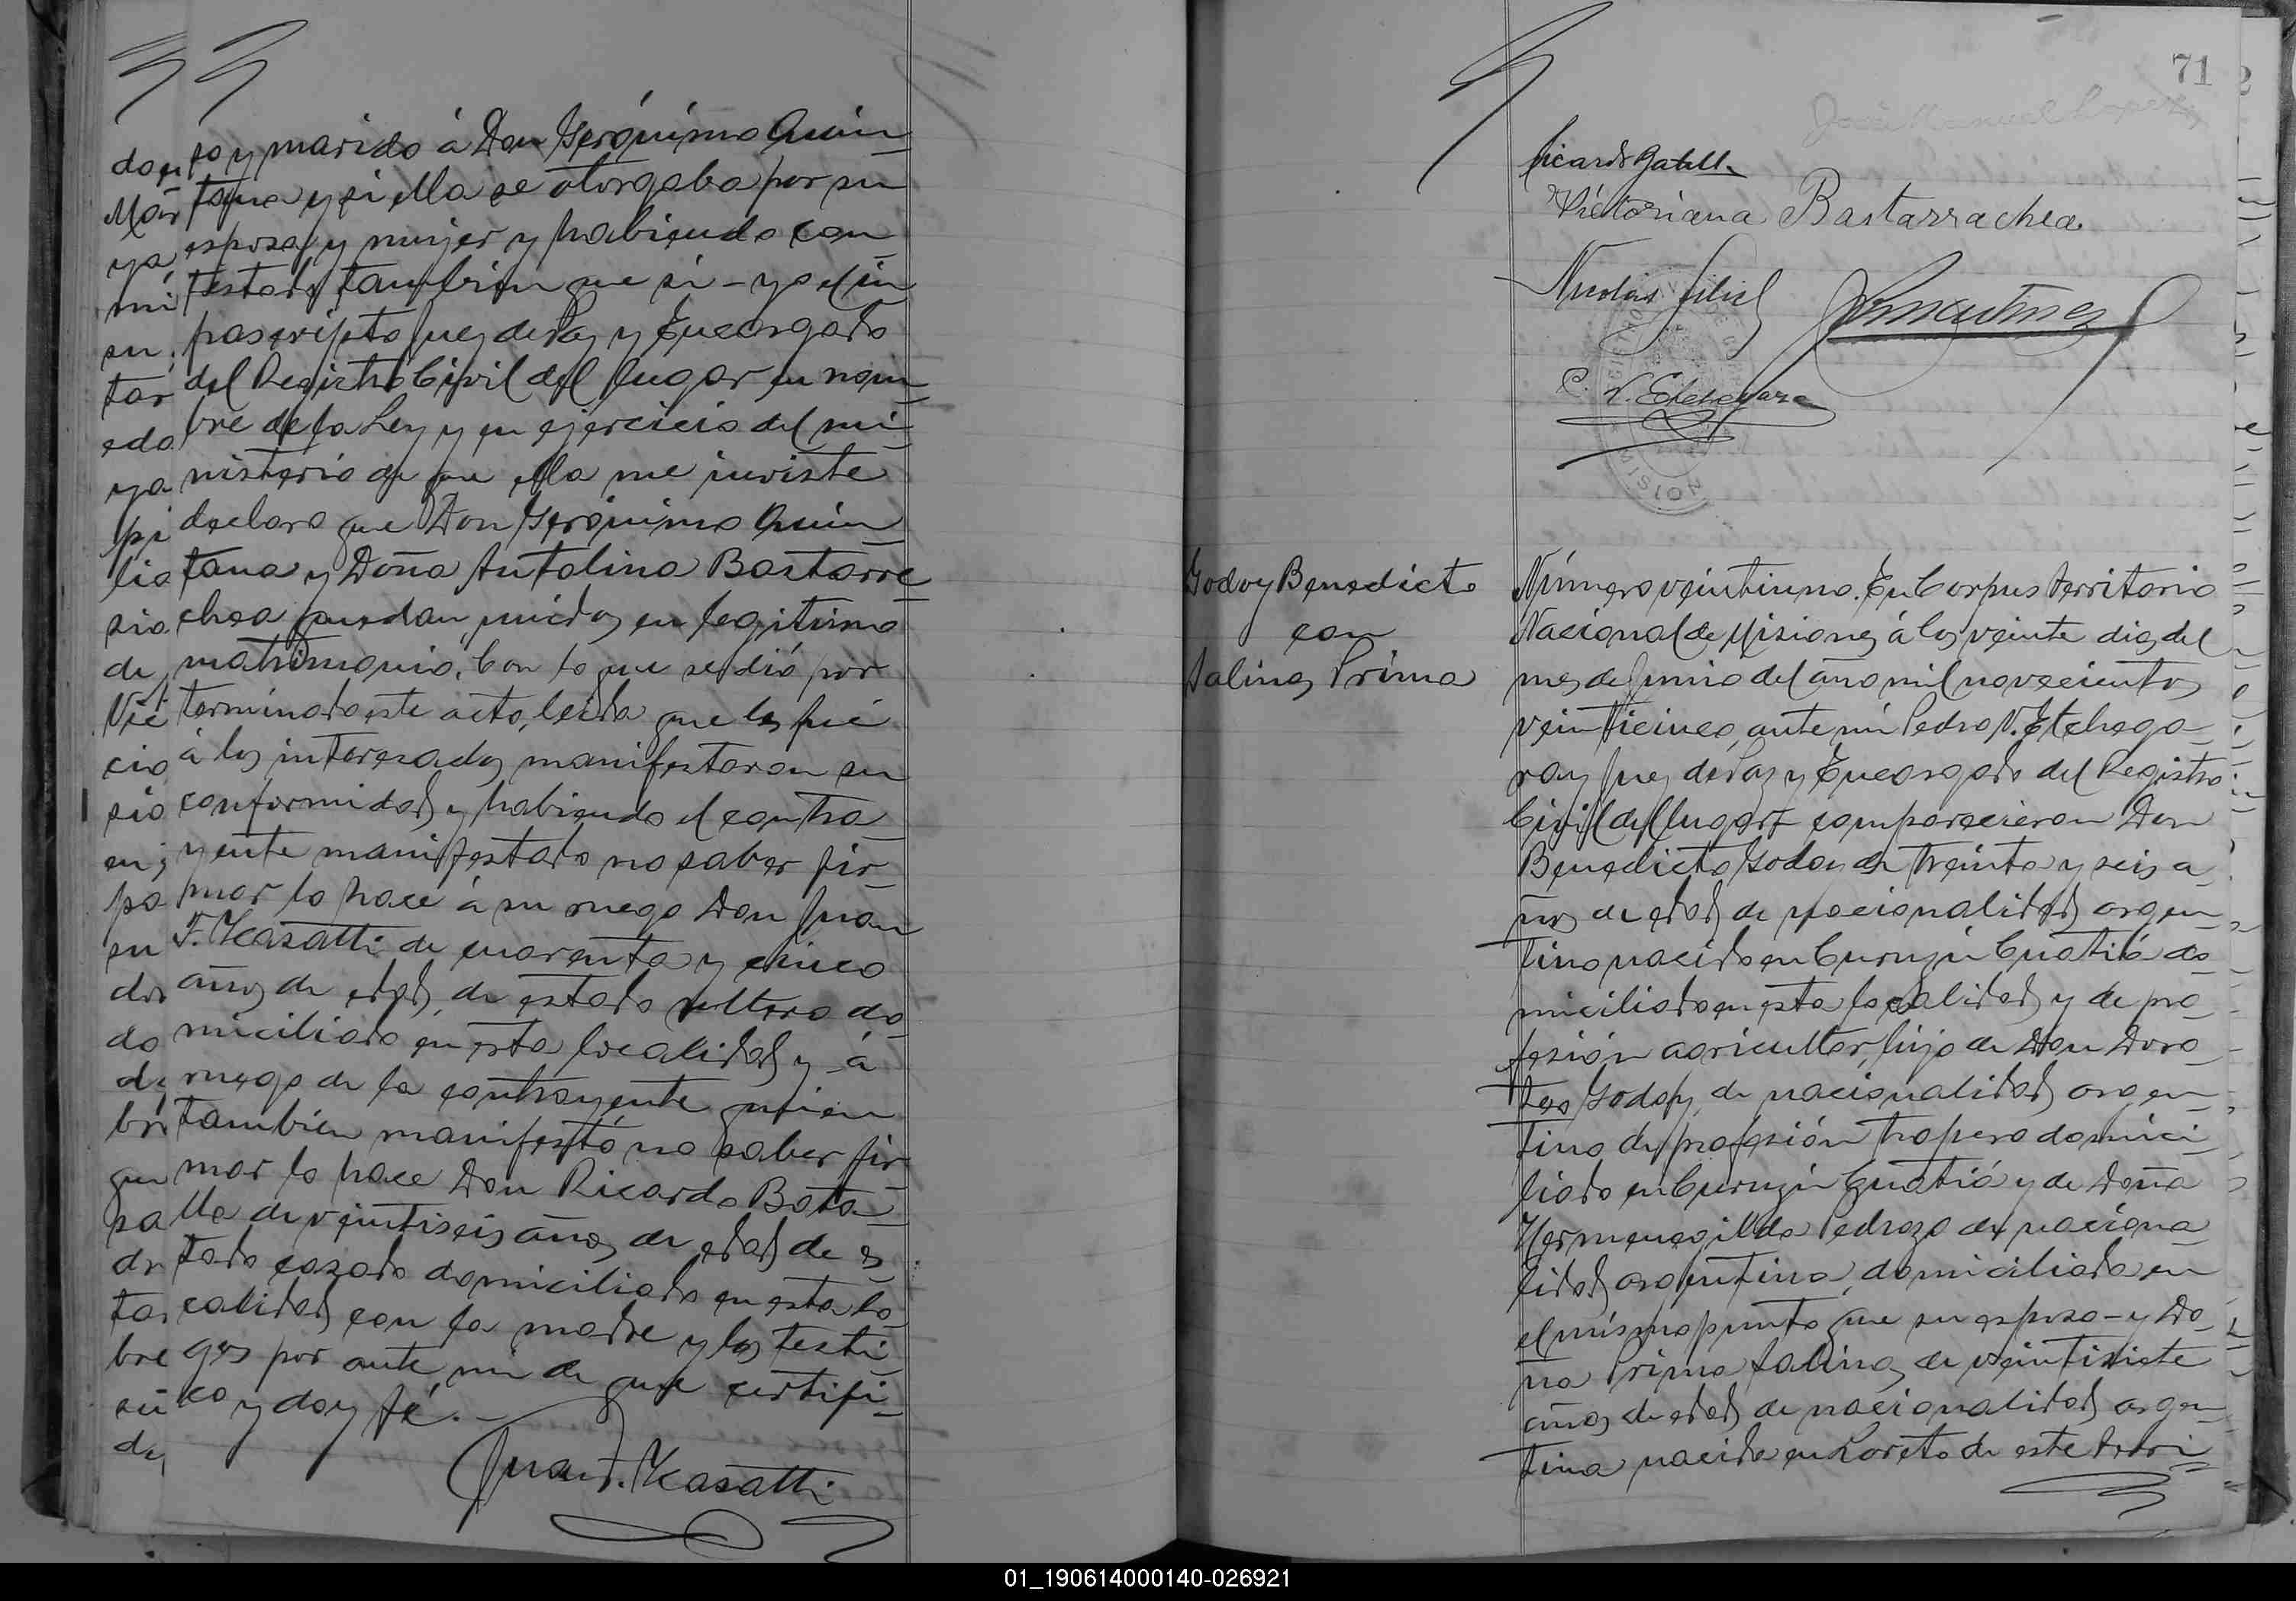 so y marido á Don Gerónimo Quin
tana y si ella se otorgaba por su
esposa y mujer y habiendo con
testado tambien que si - yo el in
frascripto Juez de Paz y Encargado
del Registro Civil del lugar en nom
bre de la Ley y en ejercicio del mi
nisterio de que ella me inviste
declaro que Don Gerónimo Quin
tana y Doña Antolina Bastarre
chea quedan unidos en legitimo
matrimonio. Con lo que se dió por
terminado este acto, leida que les fué
á los interesados manifestaron su
conformidad y habiendo el contra
yente manifestado no saber fir
mar lo hace á su ruego Don Juan
F. Kasatti de cuarenta y cinco
años de edad, de estado soltero do
miciliado en esta localidad y á
ruego de la contrayente quien
tambien manifestó no saber fir
mar lo hace Don Ricardo Bata
lla de veintiseis años de edad de es
tado casado domiciliado en esta lo
calidad con la madre y los testi
gos por ante mi de que certifi
co y doy fé. -
Juan F. Kasatti
71
Ricardo Batalla
Victoriana Bastarrachea
Nicolas
P. N. Etchegaray
Godoy Benedicto
con
Salinas Prima
Número veintiuno. En Corpus Territorio
Nacional de Misiones á los veinte dias del
mes de Junio del año mil novecientos
veinticinco, ante mi Pedro N. Etchega
ray Juez de Paz y Encargado del Registro
Civil del lugar comparecieron Don
Benedicto Godoy de treinta y seis a
ños de edad de nacionalidad argen
tino nacido en Curuzú Cuatiá do
miciliado en esta localidad y de pro
fesión agricultor, hijo de Don Doro
teo Godoy, de nacionalidad argen
tino de profesión tropero domici
liado en Curuzú Cuatiá y de Doña
Hermenegilda Pedrozo de naciona
lidad argentina, domiciliada en
el mismo punto que su esposo - y Do
ña Prima Salinas de veintisiete
años de edad de nacionalidad argen
tina nacida en Loreto de este Terri
01_190614000140-026921